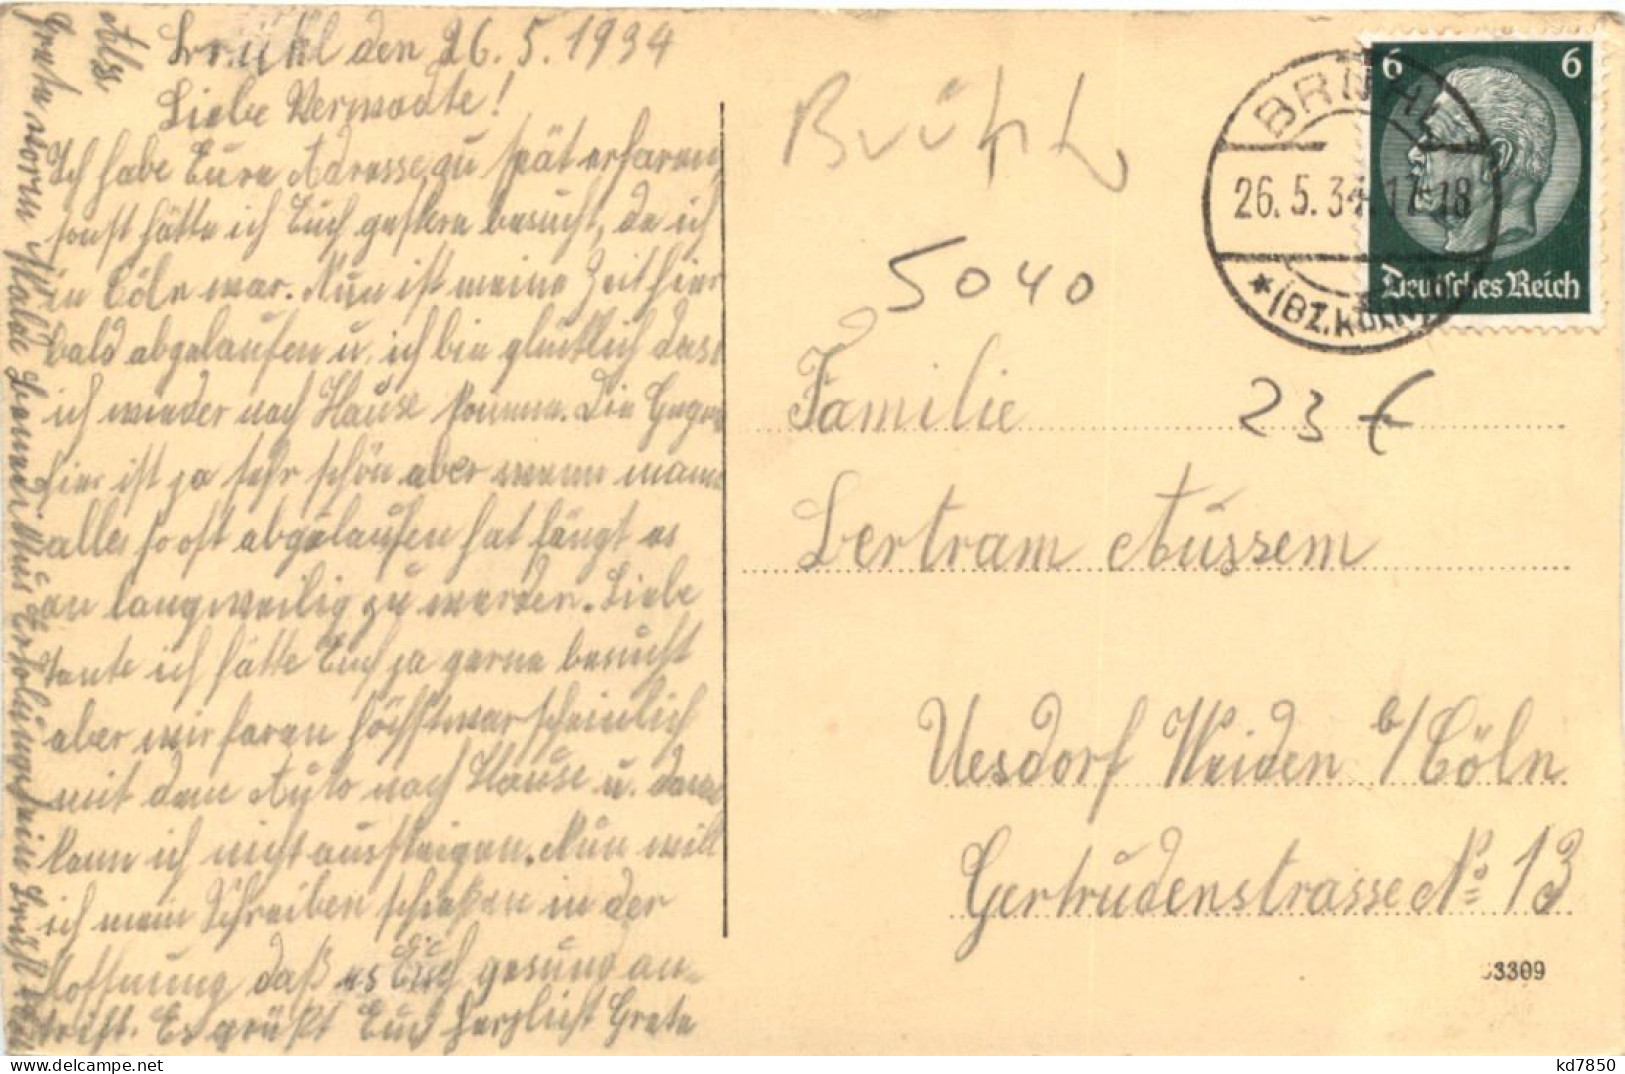 Brühl den 26.5.1934
Liebe Verwodte!
Ich habe Eure Adresse zu spät erfaren,
sonst hätte ich Euch gestern besucht, da ich
in Cöln war. Nun ist meine Zeit hier
bald abgelaufen u. ich bin glücklich dass
ich wieder nach Hause komme. Die Gegen
hier ist ja sehr schön aber wenn mann
alles so oft abgelaufen hat fängt es
an langweilig zu werden. Liebe
Tante ich hätte Euch ja gerne besucht
aber wir faren höchstwarscheinlich
mit dem Auto nach Hause u. dann
kann ich nicht aussteigen. Nun will
ich mein Schreiben schließen in der
Hoffnung daß es Euch gesund an-
trift. Es grüßt Euch herzlichst Grete
Abs.
Grete
Erholungsheim Brühl
Brühl
5040
23 €
BRÜHL
26.5.34.17-18
* (BZ. KÖLN)
6 6
Deutsches Reich
Familie
Bertram Aussem
Uesdorf Weiden b/Cöln
Gertrudenstrasse No 13
3309
www.delcampe.net
kd7850